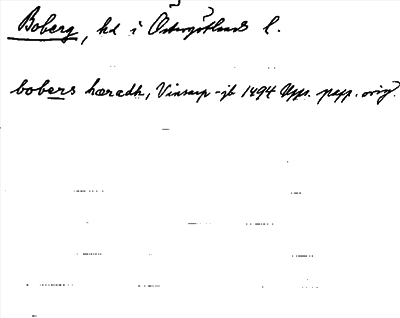 Boberg, hd i Östergötlands l.
bobers hæradh, Vinsarp-jb 1494 Upps. papp. orig.